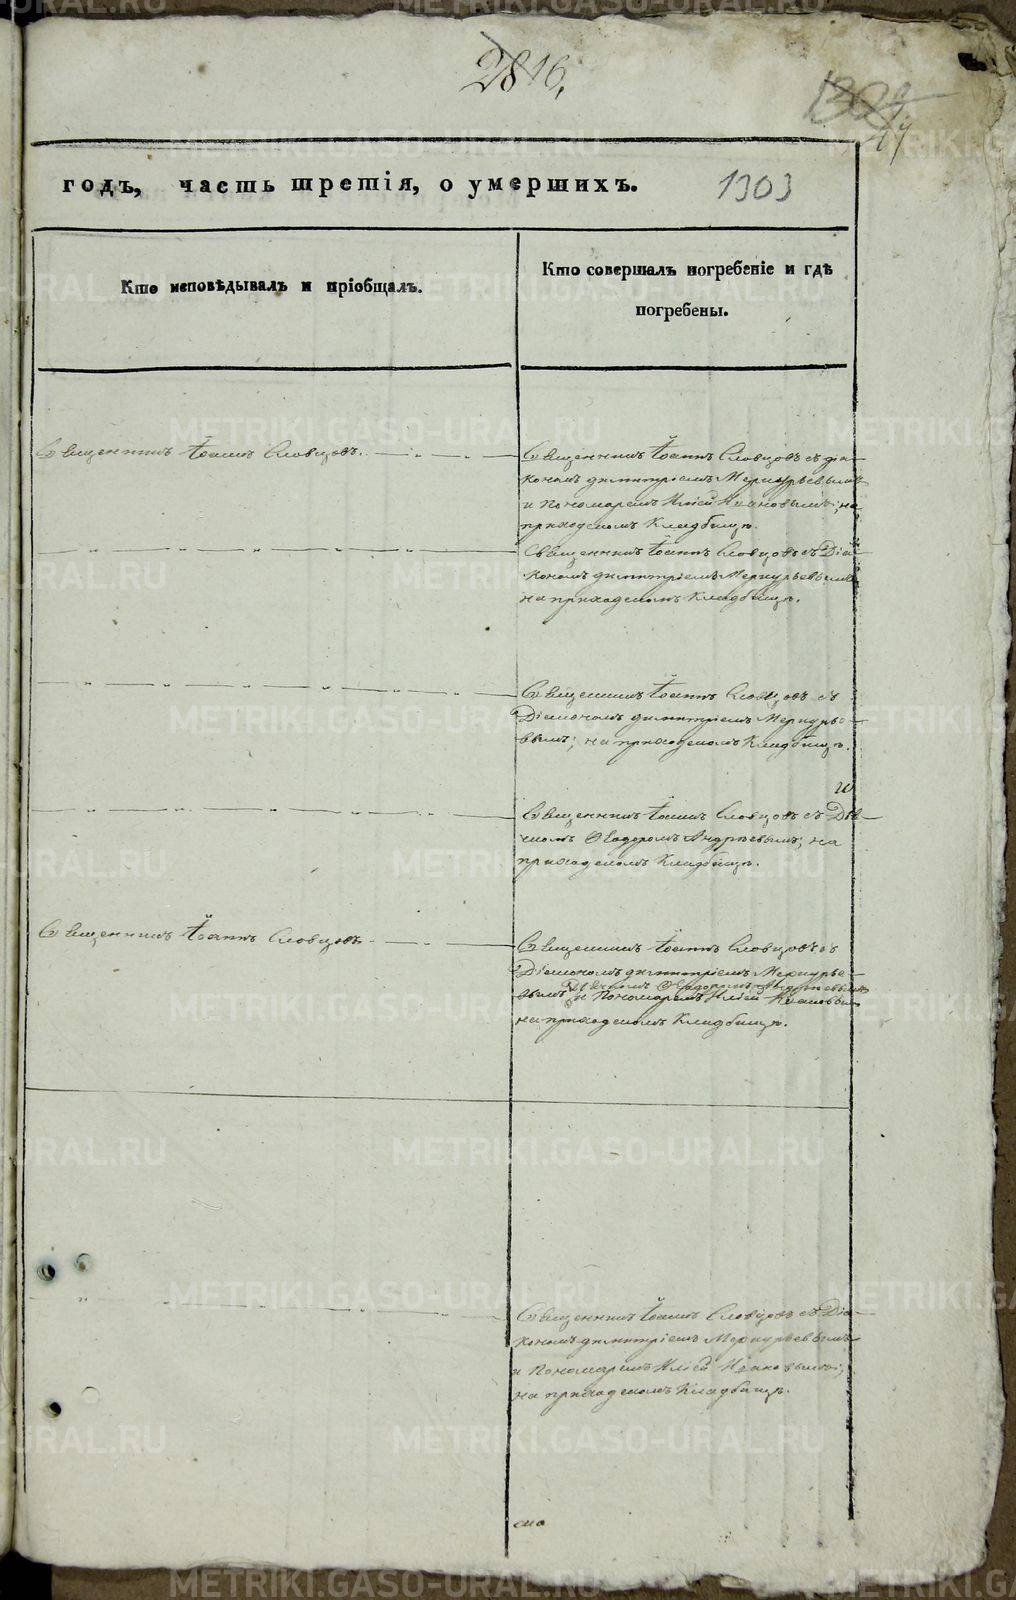 2816,
1302
годъ, часть третія, о умершихъ.
1303
Кто исповѣдывалъ и пріобщалъ.
Кто совершалъ погребеніе и гдѣ
погребены.
Священникъ Іоаннъ Словцовъ.
Священникъ Іоаннъ Словцовъ съ діа-
кономъ димитріемъ Меркурьевымъ
и Пономаремъ Иліей Ивановымъ; на
приходскомъ Кладбищѣ.
Священникъ Іоаннъ Словцовъ съ Діа-
кономъ димитріемъ Меркурьевымъ
на приходскомъ Кладбищѣ.
Священникъ Іоаннъ Словцовъ съ
Діакономъ димитріемъ Меркурье-
вымъ; на приходскомъ Кладбищѣ.
Священникъ Іоаннъ Словцовъ съ Дья-
чкомъ Ѳеодоромъ Андреевымъ; на
приходскомъ Кладбищѣ.
Священникъ Іоаннъ Словцовъ
Священникъ Іоаннъ Словцовъ съ
Діакономъ димитріемъ Меркурье-
Дьячкомъ Ѳеодоромъ Андреевымъ
вымъ и Пономаремъ Иліей Ивановым
на приходскомъ Кладбищѣ.
Священникъ Іоаннъ Словцовъ съ Діа-
кономъ димитріемъ Меркурьевымъ
и Пономаремъ Иліей Ивановымъ;
на приходскомъ Кладбищѣ.
METRIKI.GASO-URAL.RU